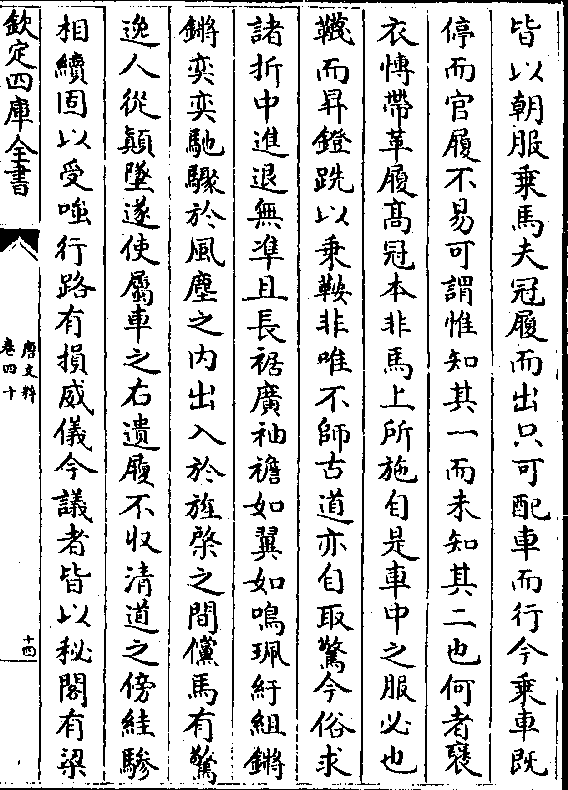 皆以朝服乗馬夫冠履而出只可配車而行今乗車既
停而官履不易可謂惟知其一而未知其二也何者襃
衣博帶革履髙冠本非馬上所施自是車中之服必也
韈而昇鐙跣以乗鞍非唯不師古道亦自取驚今俗求
諸折中進退無準且長裾廣袖襜如翼如鳴珮紆組鏘
鏘奕奕馳驟於風塵之内出入於旌棨之間儻馬有驚
逸人從顛墜遂使屬車之右遺履不収清道之傍絓驂
相續固以受嗤行路有損威儀今議者皆以秘閣有梁
欽定四庫全書
唐文粹
卷四十
十四